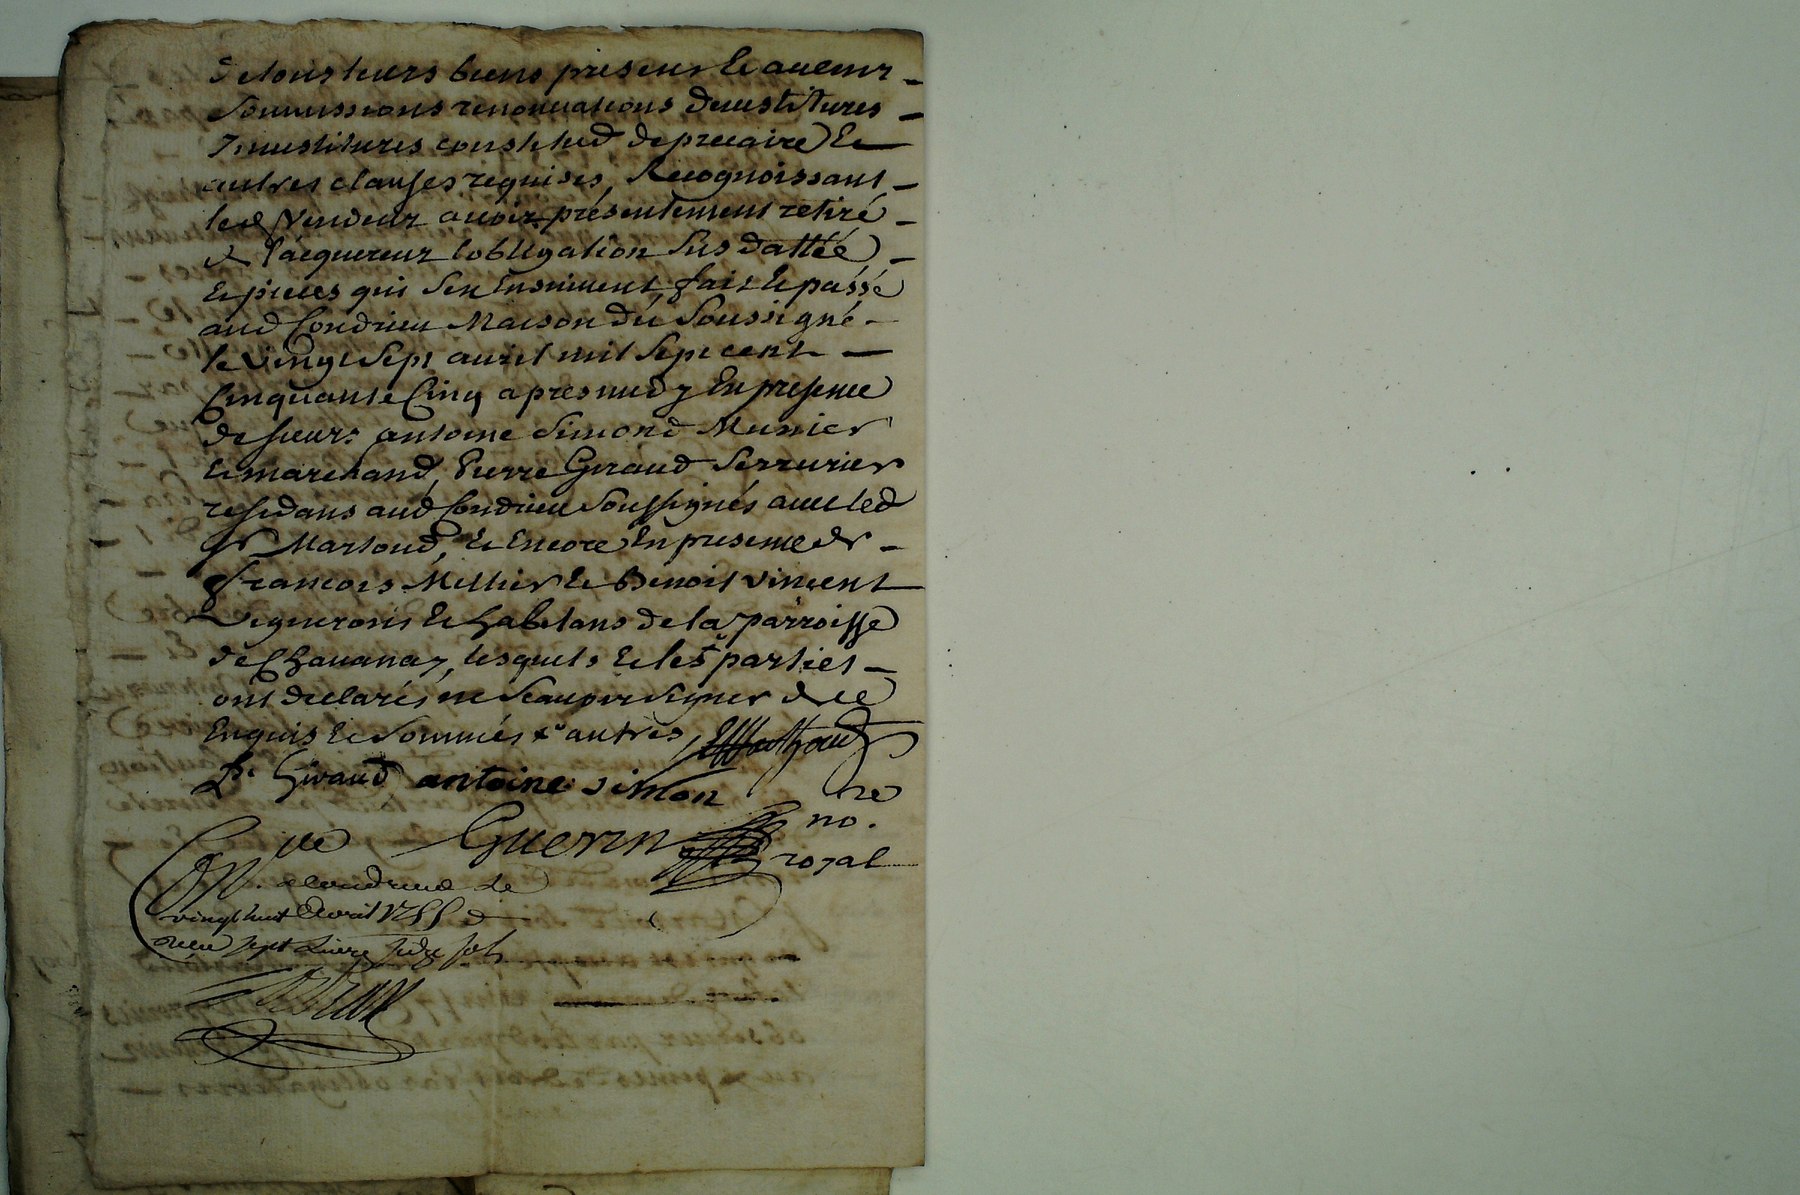 de tous leurs biens presens & auenir
soumissions renonciations deuestitures
Inuestitures constitued de precaire &
autres clauses requises, Recognoissant
led vendeur auoir présentement retiré
de l'acquereur l'obligation sus dattée
& pieces qui s'en Ensuiuent, fait & passé
aud Condrieu Maison du soussigné
le vingt sept auril mil sept cent
Cinquante Cinq apres midy En presence
de sieurs antoine Simond Musnier
& marchand, Pierre Giraud Serrurier
residans aud Condrieu soussignés auec led
Sr Marthoud, & Encore En presence de
françois Mellier & Benoit vincent
vignerons & habitans de la parroisse
de Chauanay, lesquels & les parties
ont declarés ne scauoir signer de ce
Enquis & sommés &ca autres Marthoud
P. Giraud antoine simon
Guerin nre
no.
royal
Con. a Condrieu le
vingt huit Avril 1755
receu sept Livre seize sols